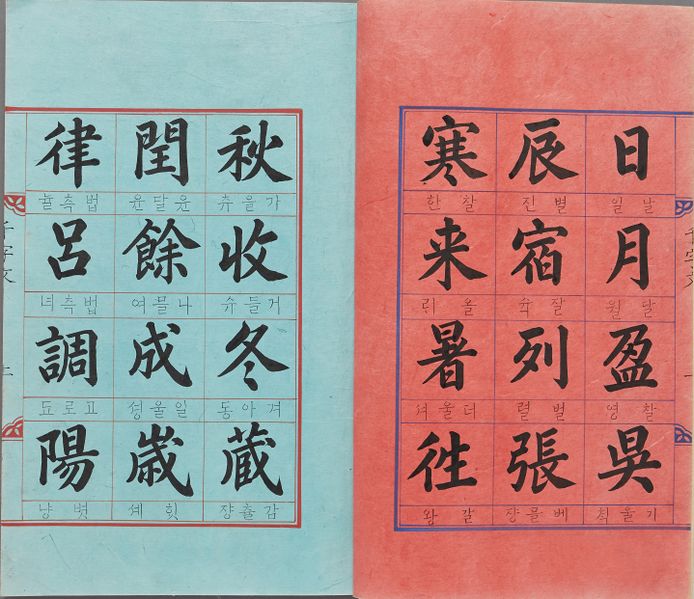 日
날일
月
달월
盈
찰영
吳
기울
辰
별진
宿
잘숙
列
벌렬
張
베믈쟝
寒
찰한
来
올
暑
더울셔
徃
갈왕
千字文
秋
가을츄
收
거들슈
冬
겨아동
蔵
감츌쟝
閏
윤달윤
餘
나믈여
成
일울셩
歳
힛셰
律
법측뉼
呂
법측녀
調
고로됴
陽
볏냥
千字文